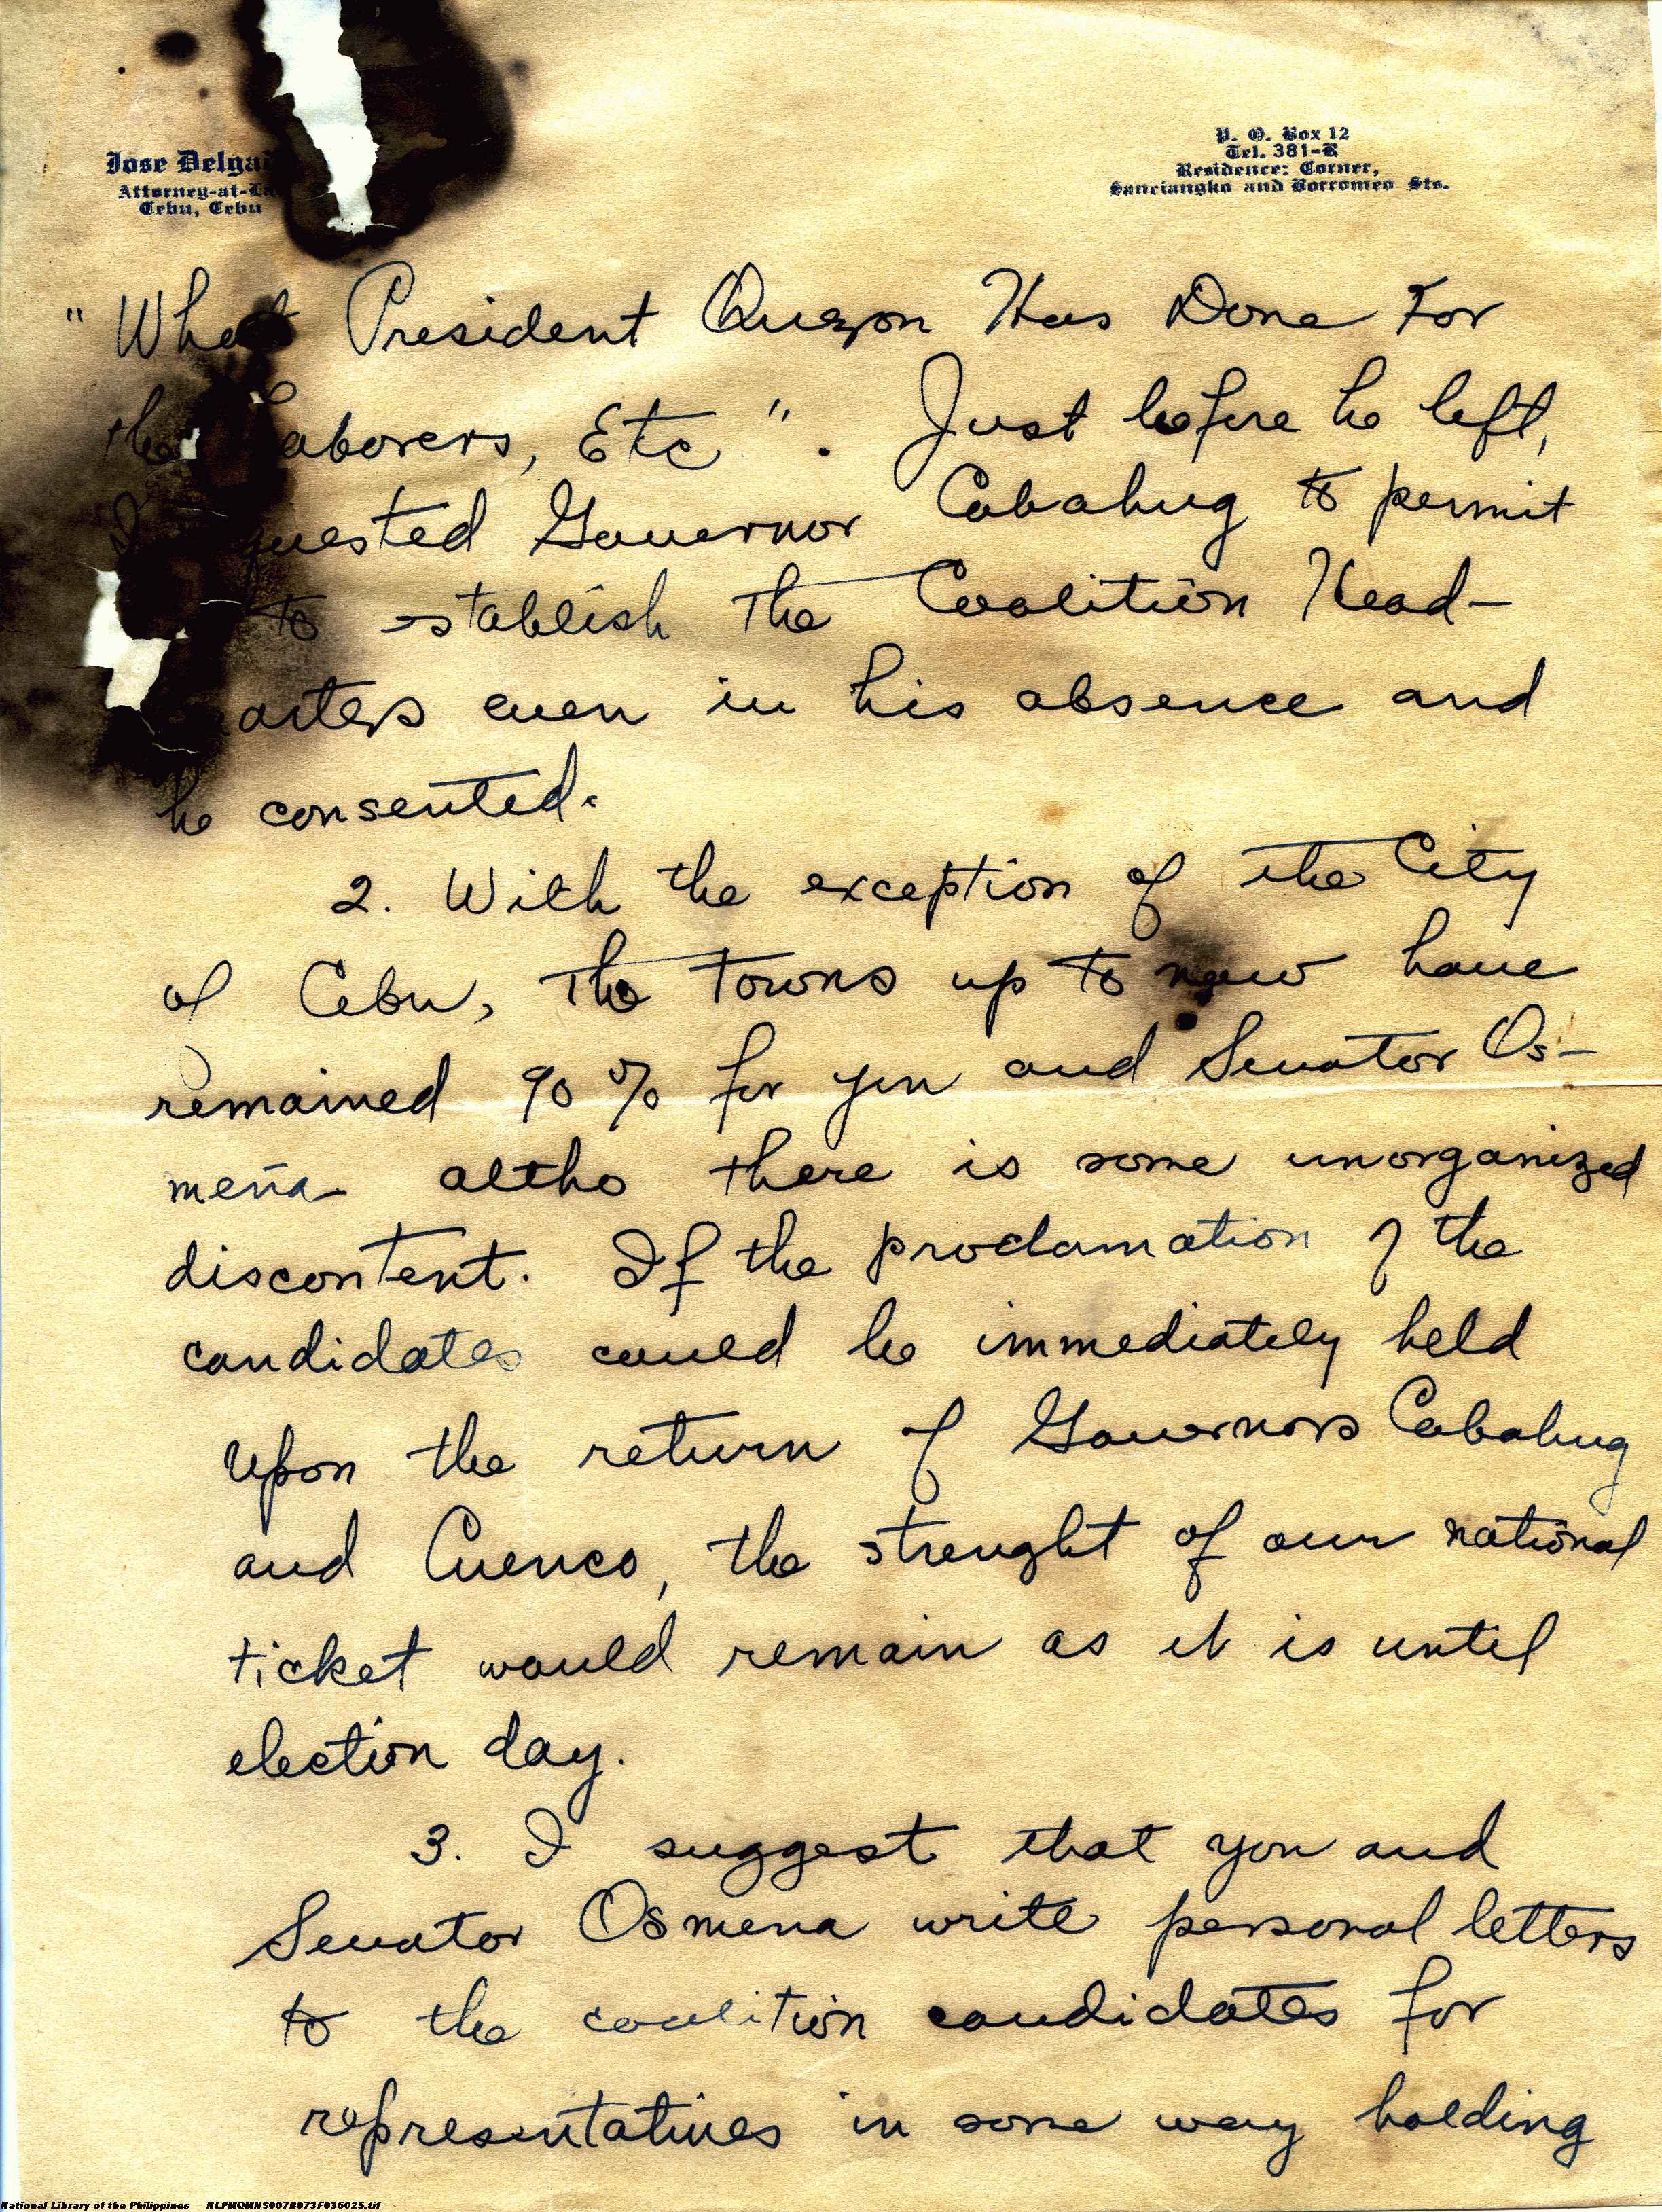 Jose Delga
Attorney-at-La
Cebu, Cebu
P. O. Box 12
Tel. 381-R
Residence: Corner,
Sanciangko and Borromeo Sts.
"What President Quezon Has Done For
the Laborers, Etc". Just before he left,
I quested Governor Cabahug to permit
to establish the Coalition Head-
arters even in his absence and
he consented.
2. With the exception of the City
of Cebu, the towns up to now have
remained 90% for you and Senator Os-
meña altho there is some unorganized
discontent. If the proclamation of the
candidates could be immediately held
upon the return of Governors Cabahug
and Cuenco, the strenght of our national
ticket would remain as it is until
election day.
3. I suggest that you and
Senator Osmena write personal letters
to the coalition candidates for
representatives in some way holding
National Library of the Philippines NLPMQMNS007B073F036025.tif